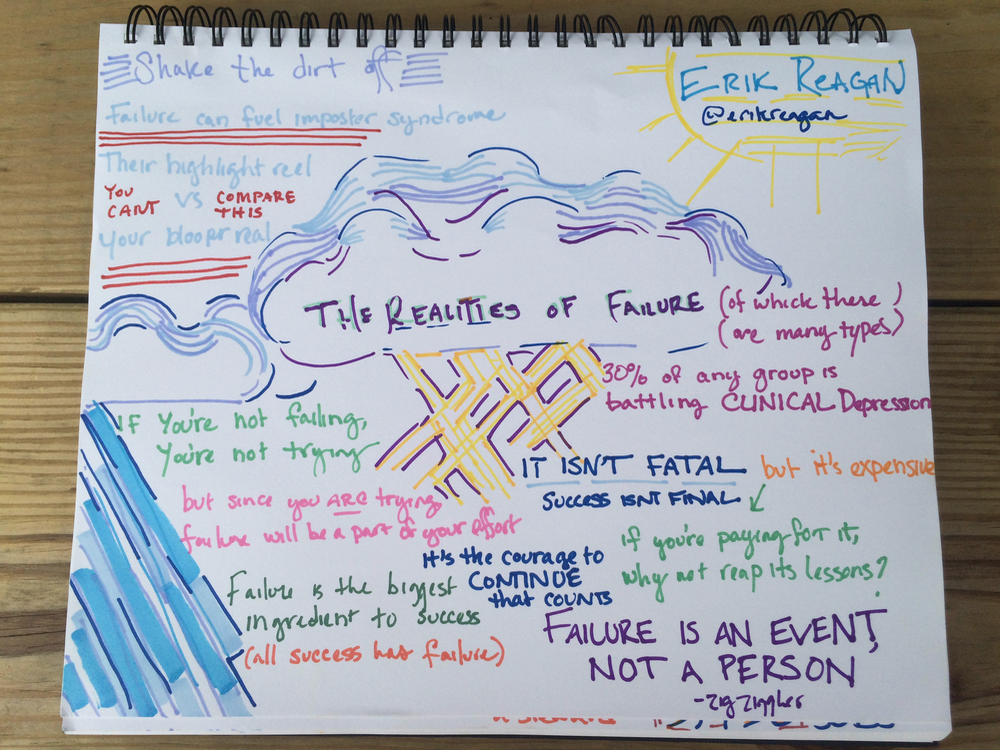 Shake the dirt off
ERIK REAGAN
@erikreagan
Failure can fuel imposter syndrome
Their highlight reel
YOU CANT
VS
COMPARE THIS
Your bloopr real
THE REALITIES OF FAILURE
(of which there)
(are many types)
30% of any group is
battling CLINICAL Depression
IF You're not failing,
You're not trying
but since you ARE trying,
failure will be a part of your effort
IT ISN'T FATAL
but it's expensive
SUCCESS ISNT FINAL
if you're paying for it,
why not reap its lessons?
It's the courage to
CONTINUE
that COUNTS
Failure is the biggest
ingredient to success
(all success has failure)
FAILURE IS AN EVENT,
NOT A PERSON
-zig zigglar